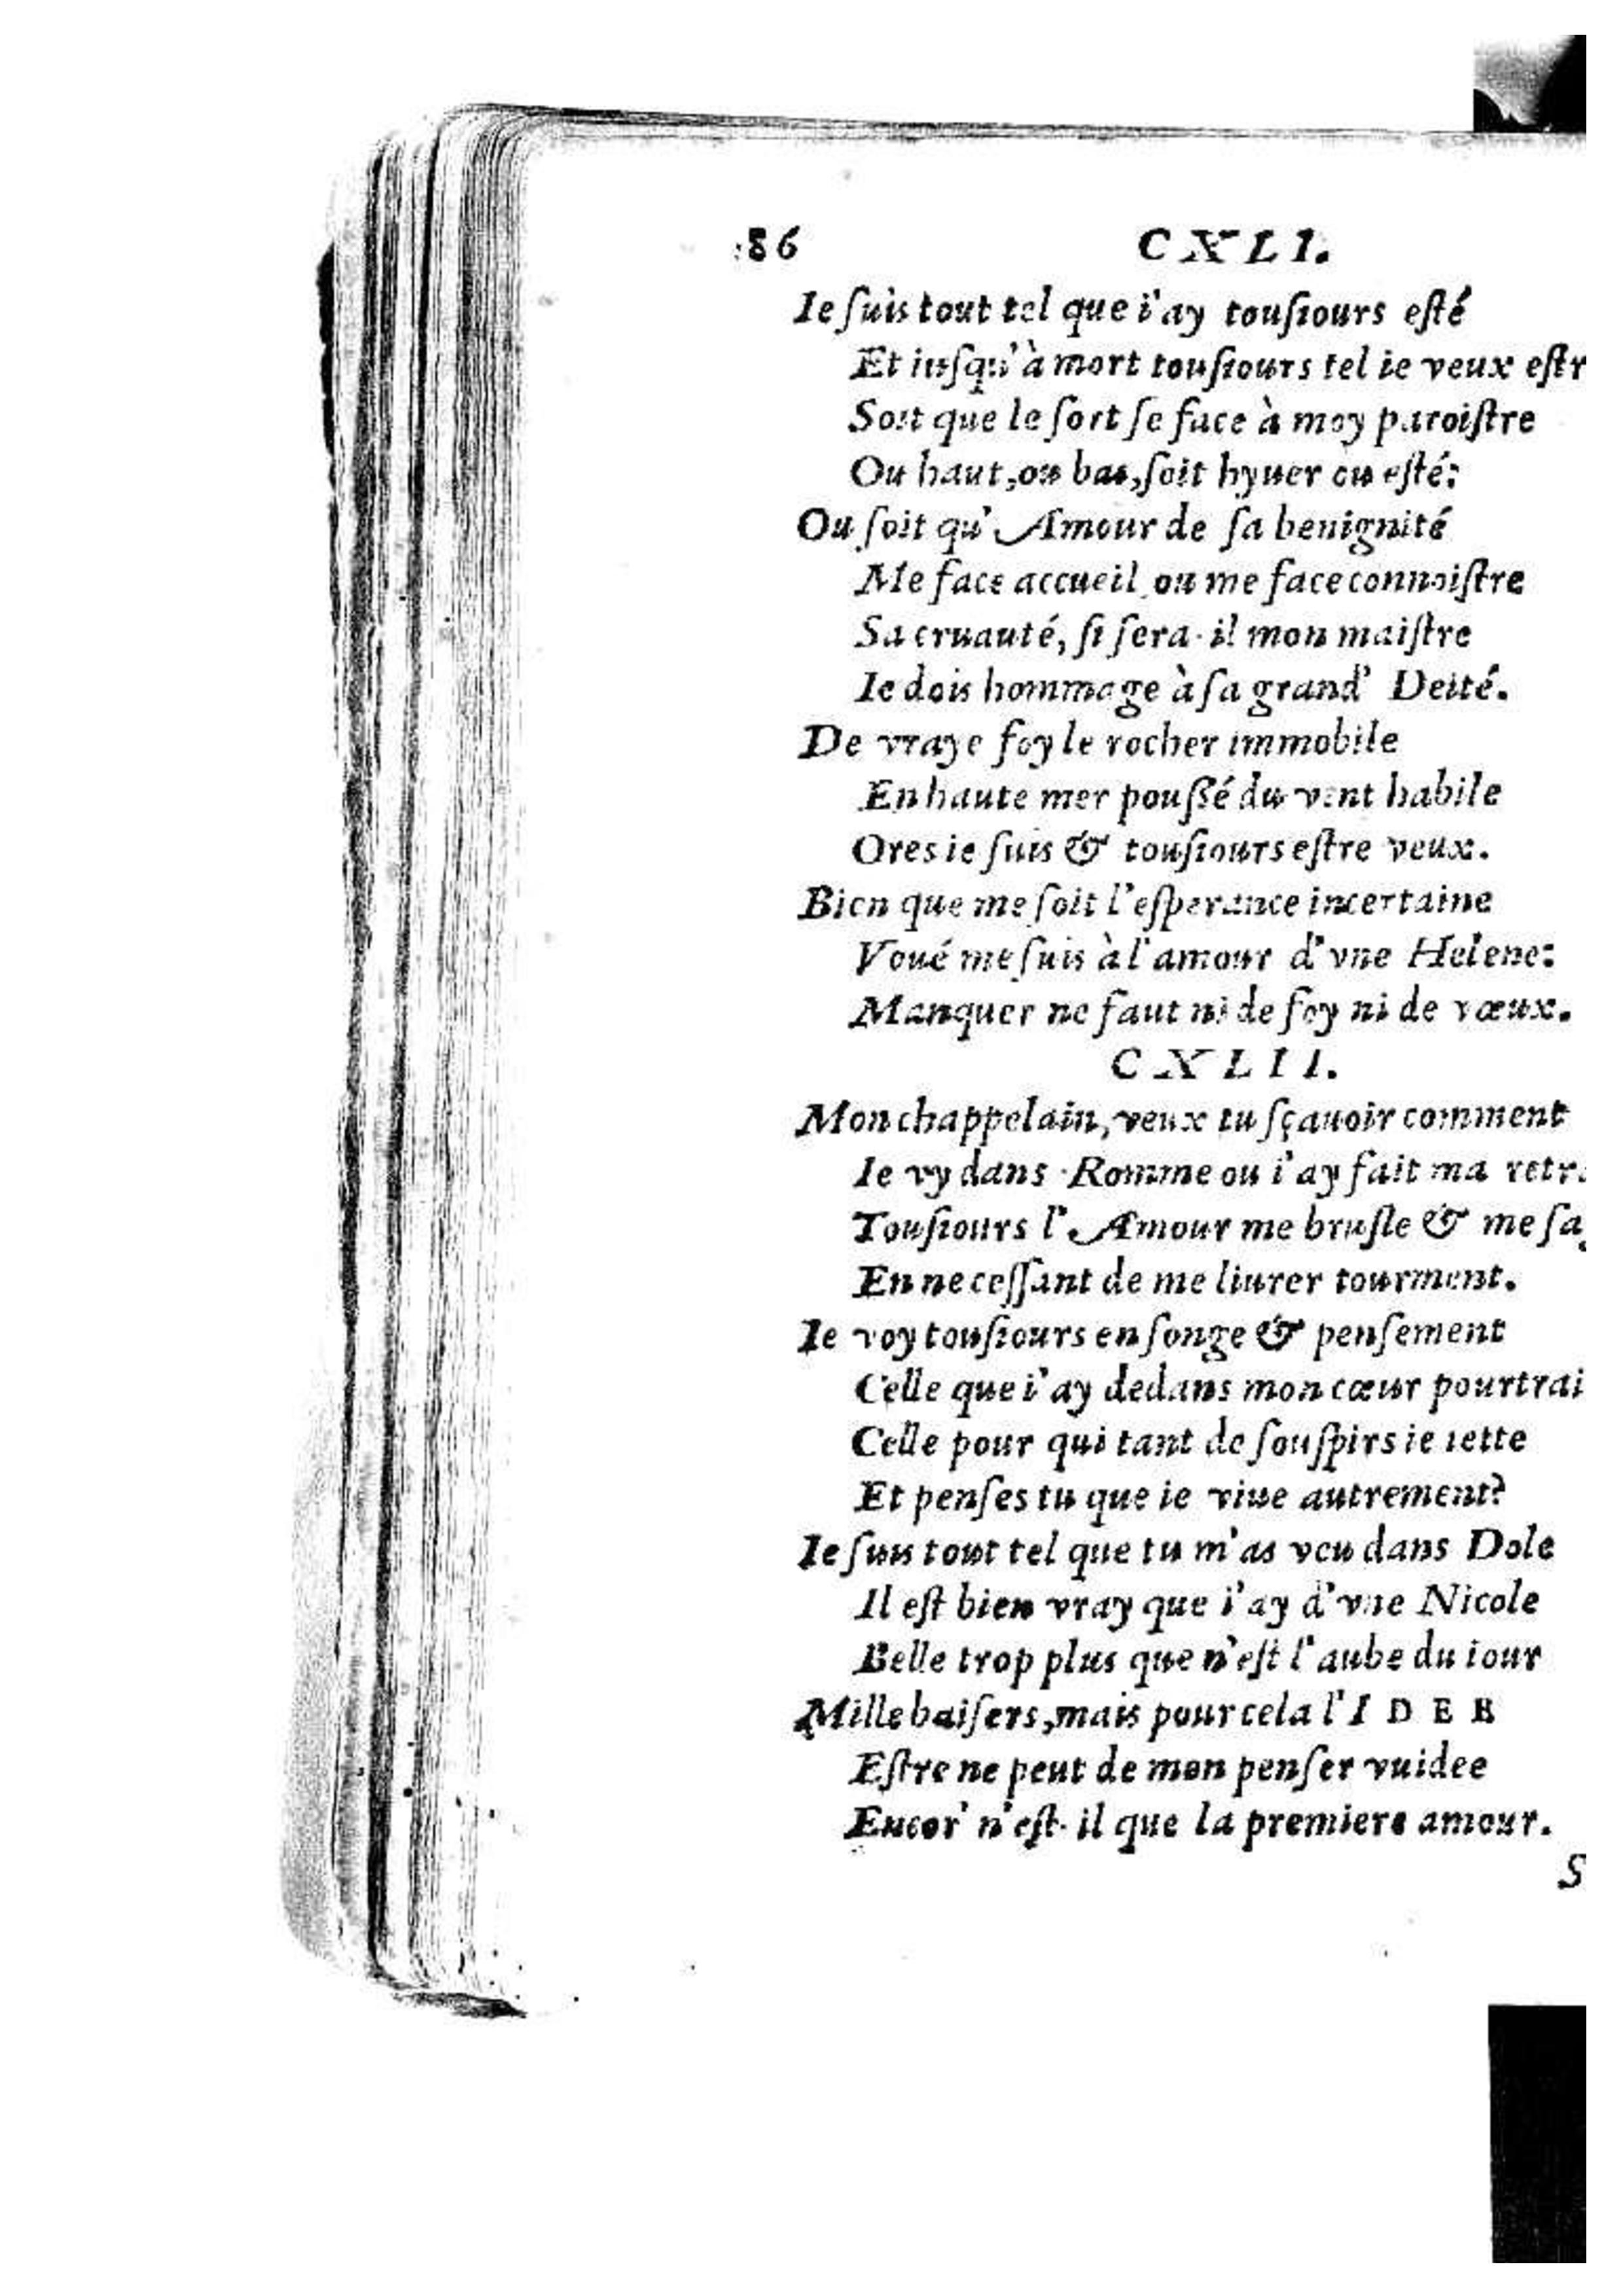 86 CXLI.
Ie ſuis tout tel que i'ay touſiours eſté
Et iuſqu'à mort touſiours tel ie veux eſtr
Soit que le ſort ſe face à moy paroiſtre
Ou haut, ou bas, ſoit hyuer ou eſté:
Ou ſoit qu'Amour de ſa benignité
Me face accueil ou me face connoiſtre
Sa cruauté, ſi ſera-il mon maiſtre
Ie dois hommage à ſa grand' Deité.
De vraye foy le rocher immobile
En haute mer pouſſé du vent habile
Ores ie ſuis & touſiours eſtre veux.
Bien que me ſoit l'eſperance incertaine
Voué me ſuis à l'amour d'vne Helene:
Manquer ne faut ni de foy ni de vœux.
CXLII.
Mon chappelain, veux tu ſçauoir comment
Ie vy dans Romme ou i'ay fait ma retr
Touſiours l'Amour me bruſle & me ſa
En ne ceſſant de me liurer tourment.
Ie voy touſiours en ſonge & penſement
Celle que i'ay dedans mon cœur pourtrai
Celle pour qui tant de ſouſpirs ie iette
Et penſes tu que ie viue autrement?
Ie ſuis tout tel que tu m'as veu dans Dole
Il eſt bien vray que i'ay d'vne Nicole
Belle trop plus que n'eſt l'aube du iour
Mille baiſers, mais pour cela l'IDEE
Eſtre ne peut de mon penſer vuidee
Encor' n'eſt-il que la premiere amour.
S